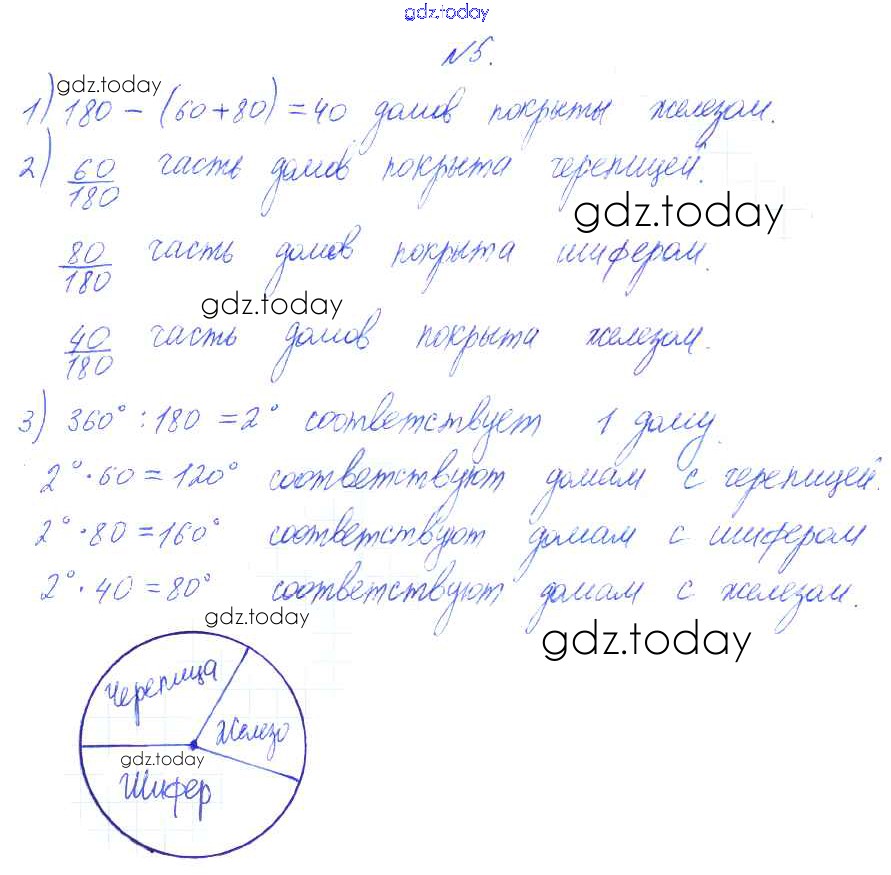 gdz.today
№5.
gdz.today
1) 180 - (60+80) = 40 домов покрыты железом.
2) 60/180 часть домов покрыта черепицей.
gdz.today
80/180 часть домов покрыта шифером.
gdz.today
40/180 часть домов покрыта железом.
3) 360° : 180 = 2° соответствует 1 дому.
2° · 60 = 120° соответствуют домам с черепицей.
2° · 80 = 160° соответствуют домам с шифером
2° · 40 = 80° соответствуют домам с железом.
gdz.today
gdz.today
Черепица
Железо
gdz.today
Шифер